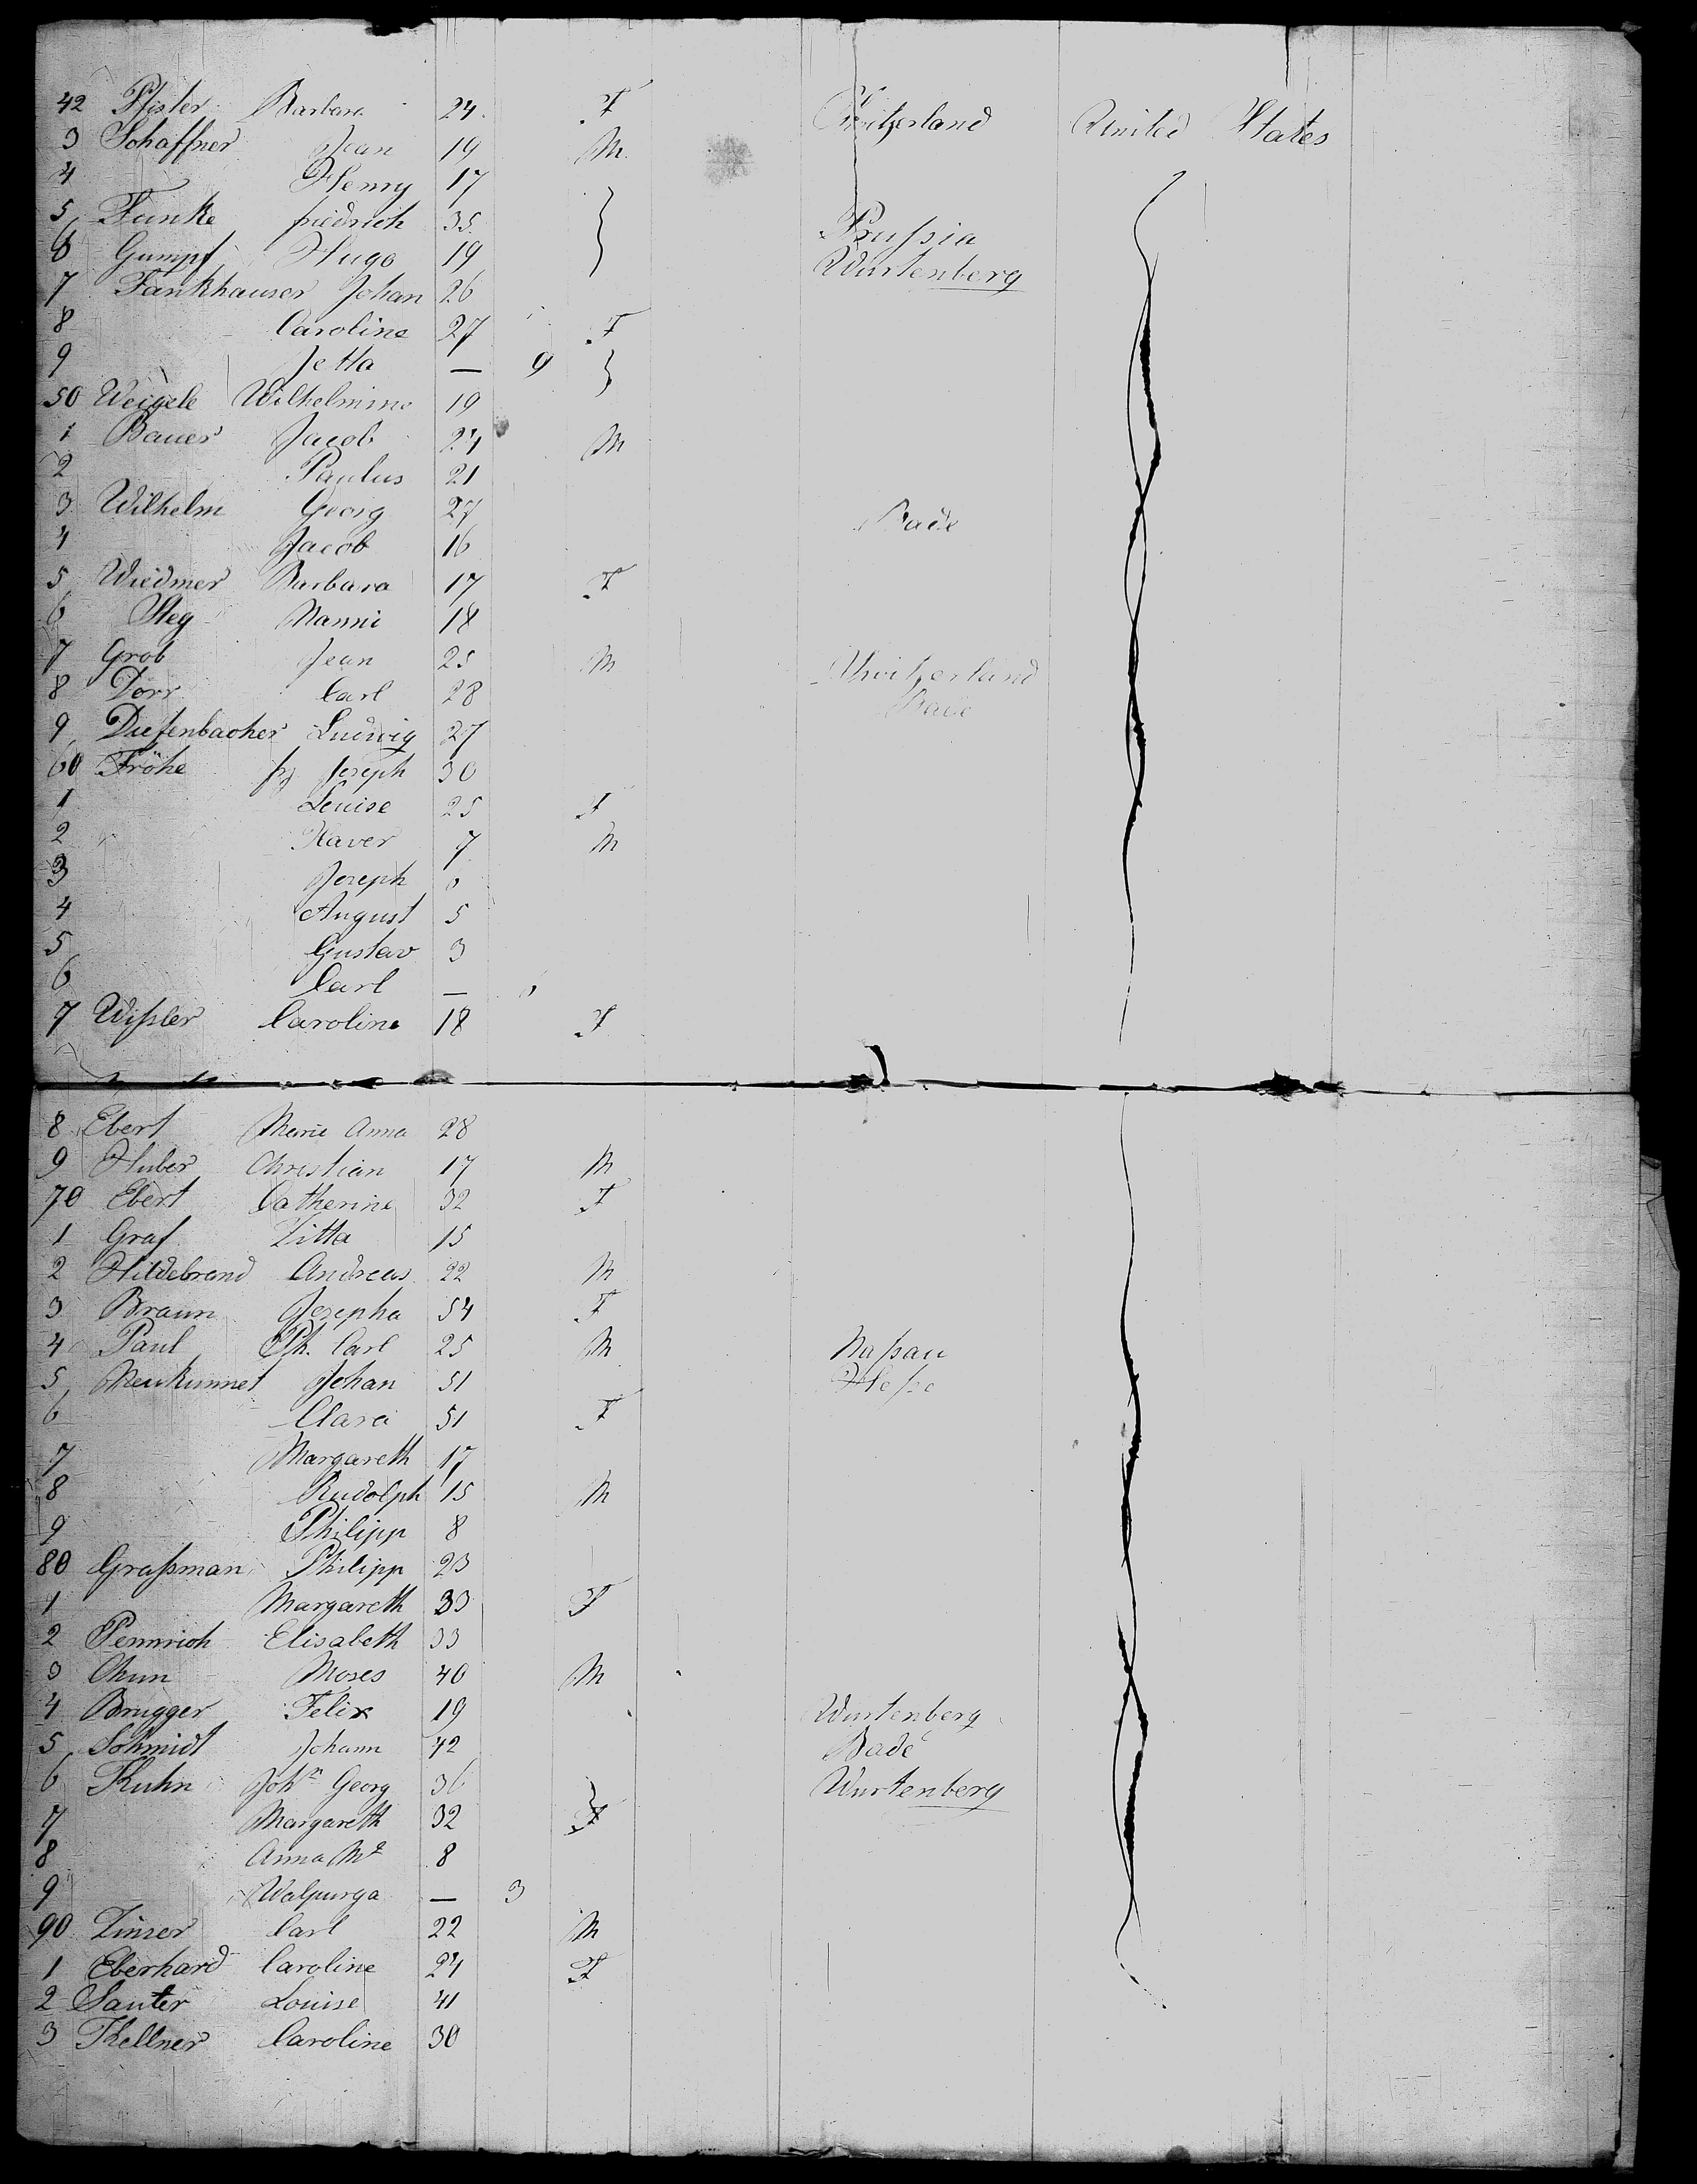 42 Pfister Barbara 24 F Switzerland United States
3 Schaffner Jean 19 M
4 Henry 17
5 Funke friedrich 35 Prußia
6 Gumpf Hugo 19 Wurtenberg
7 Fankhauser Johan 26
8 Caroline 27 F
9 Jetta — 9
50 Weigele Wilhelmine 19
1 Bauer Jacob 24 M
2 Paulus 21
3 Wilhelm Georg 27 Bade
4 Jacob 16
5 Wiedmer Barbara 17 F
6 Steg Nanni 18
7 Grob Jean 25 M Switzerland
8 Dorr Carl 28 Bade
9 Diefenbacher Ludwig 27
60 Fröhe frz Joseph 30
1 Louise 25 F
2 Xaver 7 M
3 Joseph 6
4 August 5
5 Gustav 3
6 Carl —
7 Wißler Caroline 18 F
8 Ebert Marie Anna 28
9 Huber Christian 17 M
70 Ebert Catherine 32 F
1 Graf Zitta 15
2 Hildebrand Andreas 22 M
3 Braun Josepha 54 F
4 Paul Ph. Carl 25 M Naßau
5 Neukummet Johan 51 Heße
6 Clara 51 F
7 Margareth 17
8 Rudolph 15 M
9 Philipp 8
80 Graßman Philipp 23
1 Margareth 33 F
2 Pennrich Elisabeth 33
3 Chun Moses 40 M
4 Brugger Felix 19 Wurtenberg
5 Schmidt Johann 42 Bade
6 Kuhn John Georg 36 Wurtenberg
7 Margareth 32 F
8 Anna Ma 8
9 Walpurga — 3
90 Zinser Carl 22 M
1 Eberhard Caroline 24 F
2 Sauter Louise 41
3 Kellner Caroline 30